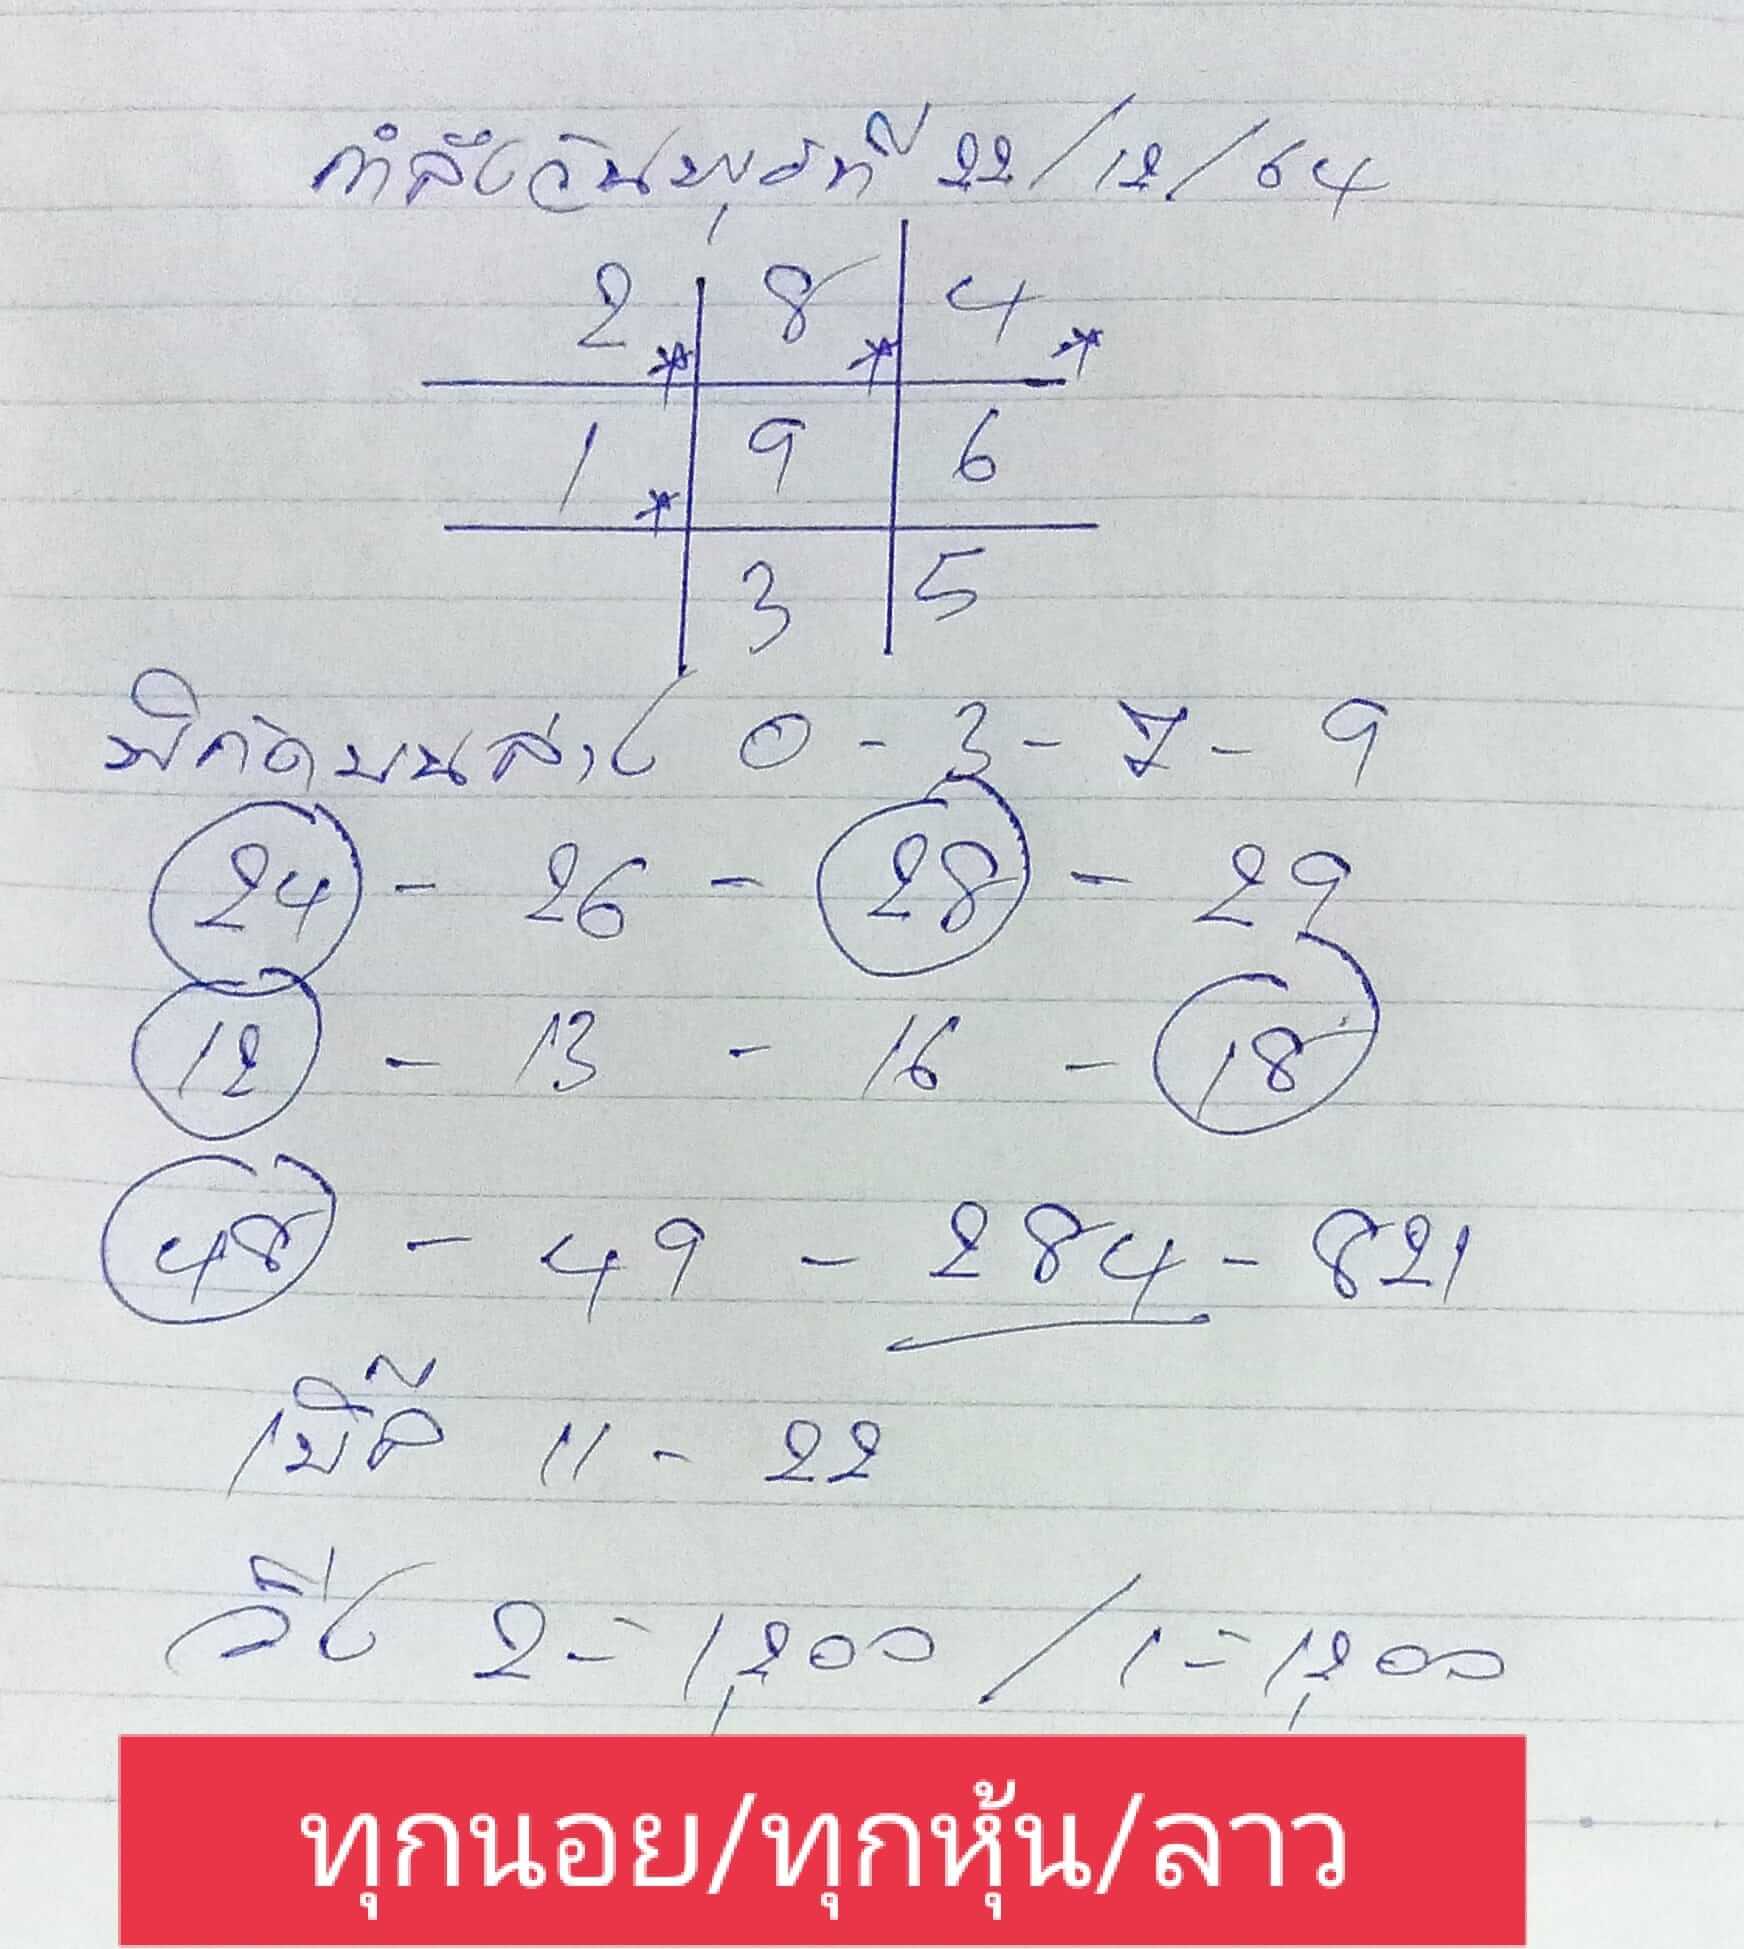 กำลังวันพุธที่ 22/12/64
2 * 8 * 4 *
1 * 9 6
3 5
พิกัดบนล่าง 0 - 3 - 7 - 9
24 - 26 - 28 - 29
12 - 13 - 16 - 18
48 - 49 - 284 - 821
เบิ้ล 11 - 22
วิ่ง 2 = 1,200 / 1 = 1,200
ทุกนอย/ทุกหุ้น/ลาว